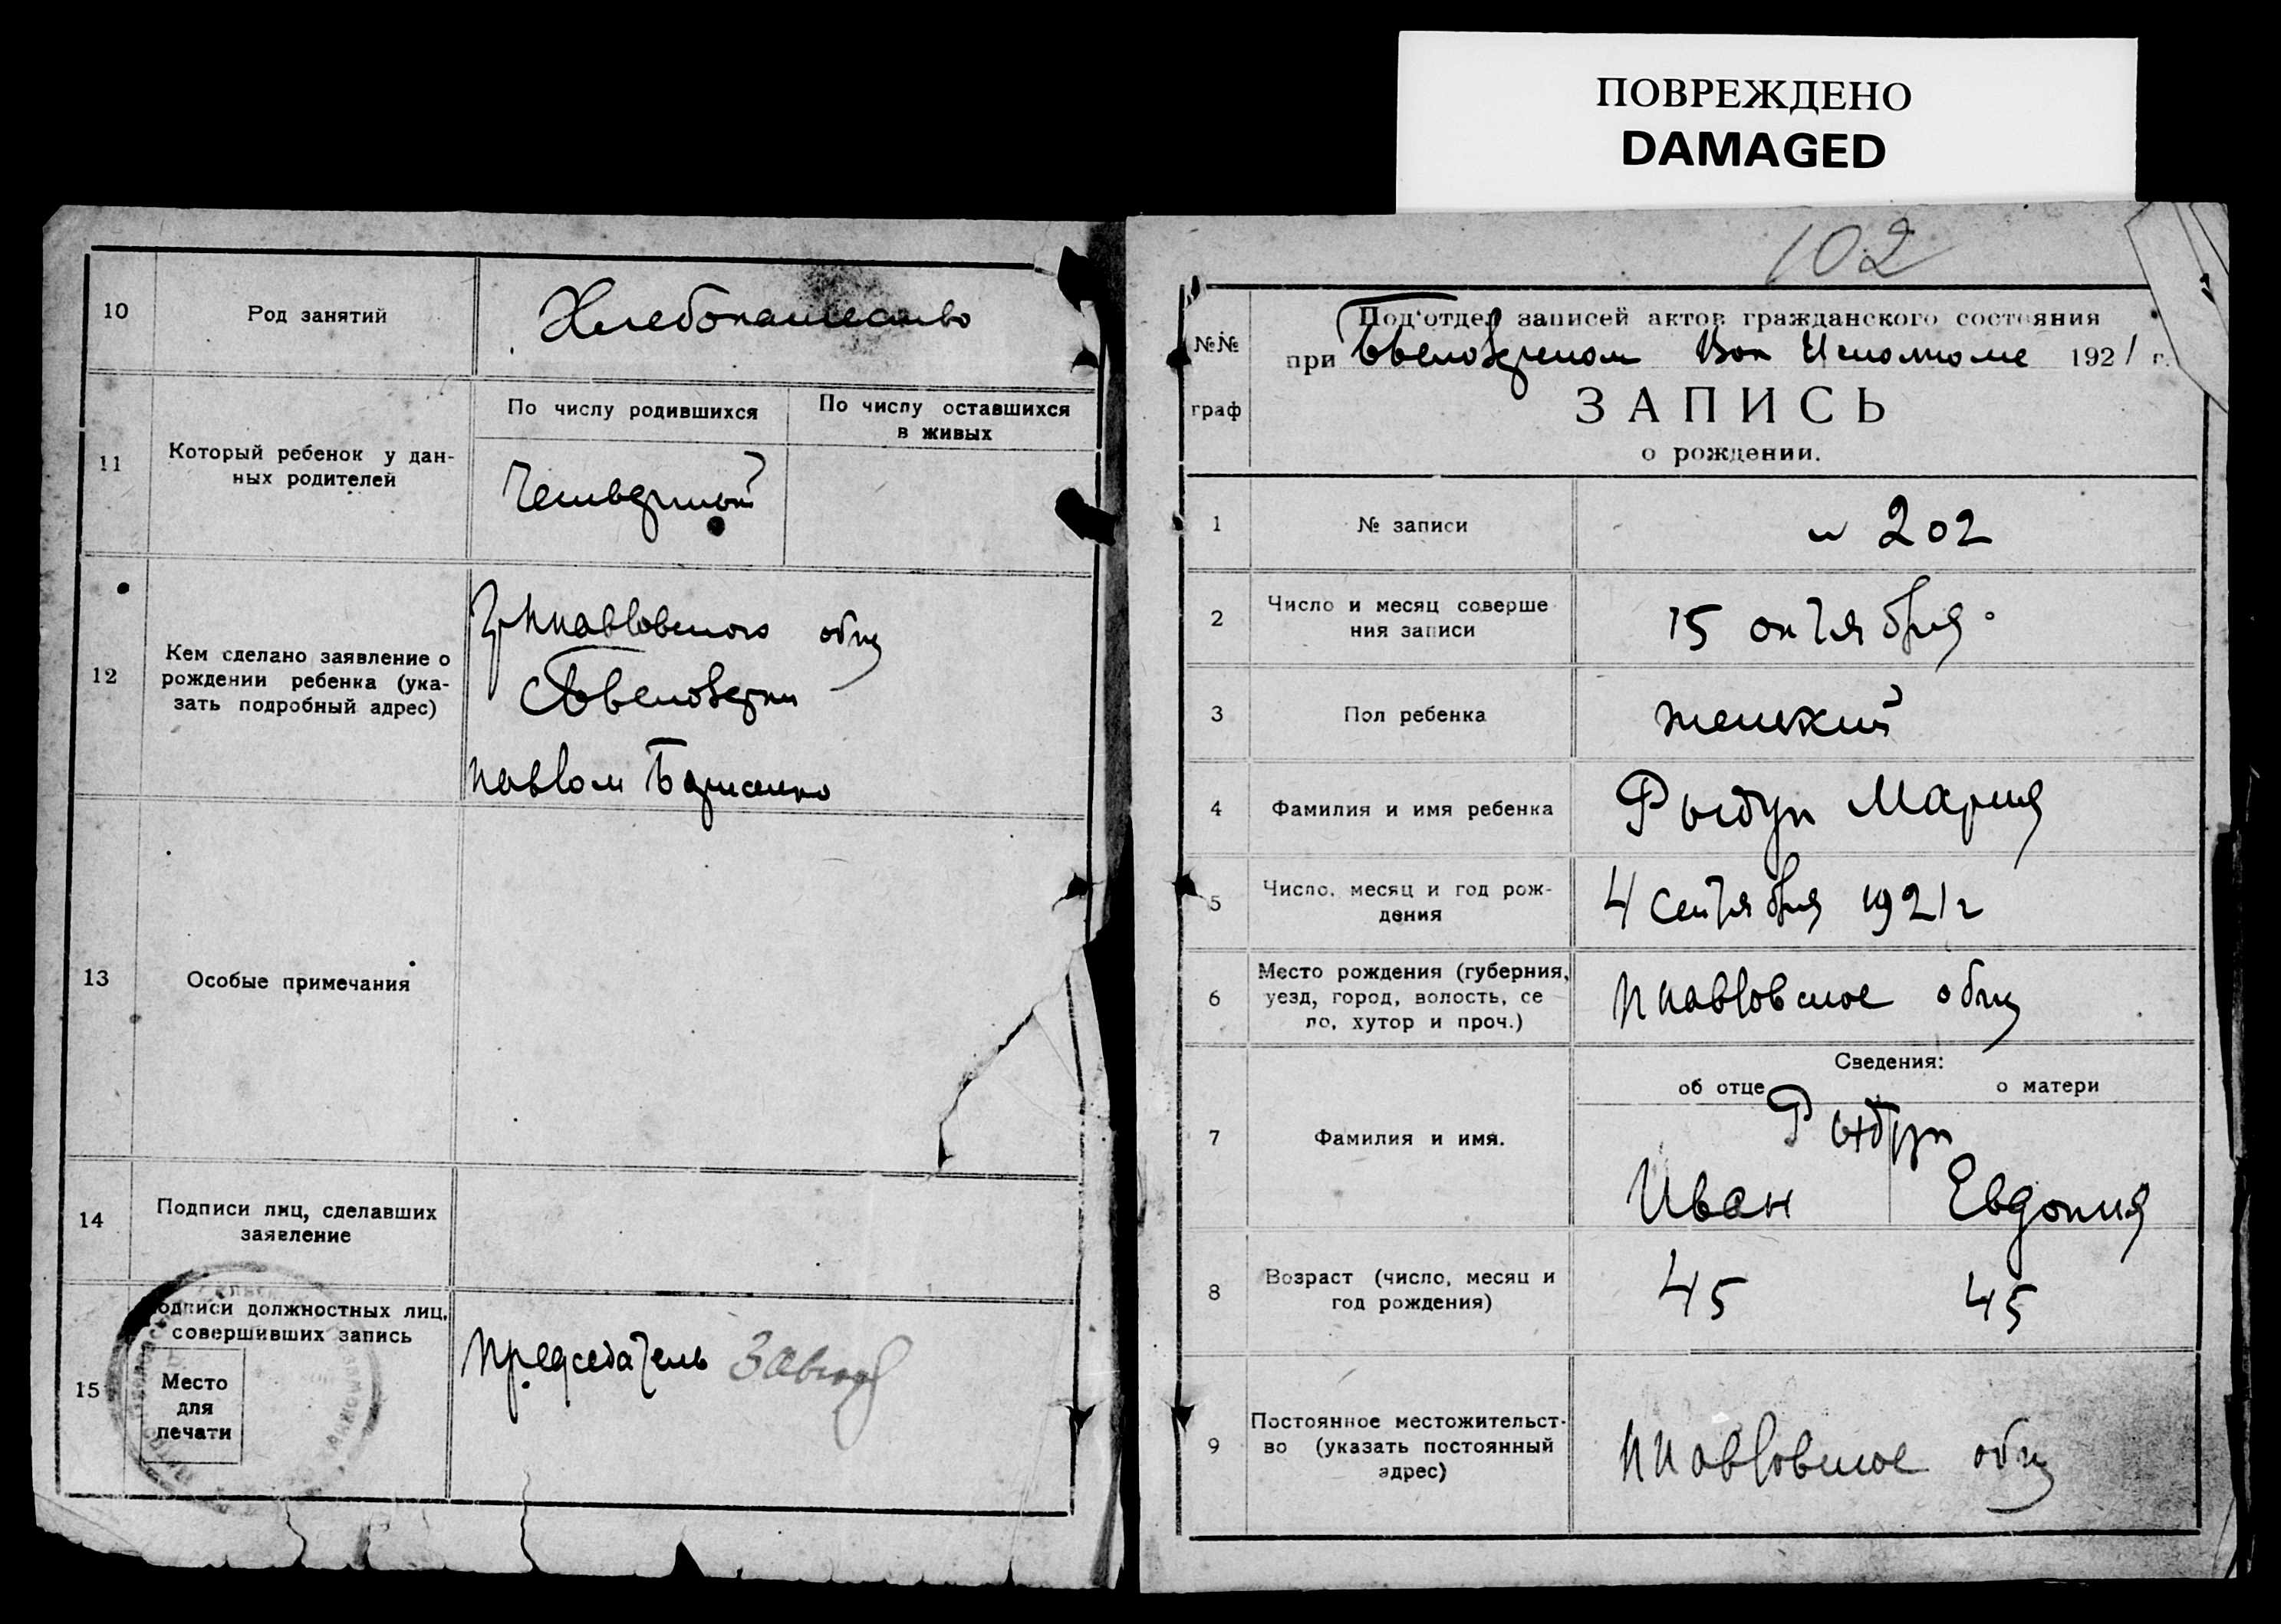 ПОВРЕЖДЕНО
DAMAGED
10
Род занятий
Хлебопашество
11
Который ребенок у дан-
ных родителей
По числу родившихся
Четвертый
По числу оставшихся
в живых
12
Кем сделано заявление о
рождении ребенка (ука-
зать подробный адрес)
общ
13
Особые примечания
14
Подписи лиц, сделавших
заявление
15
Подписи должностных лиц,
совершивших запись
Место
для
печати
Председатель
102
№№
граф
Под'отдел записей актов гражданского состояния
при Вол Исполкоме 1921 г.
ЗАПИСЬ
о рождении.
1
№ записи
202
2
Число и месяц соверше
ния записи
15 октября
3
Пол ребенка
женский
4
Фамилия и имя ребенка
Рыбун Мария
5
Число, месяц и год рож-
дения
4 сентября 1921 г
6
Место рождения (губерния,
уезд, город, волость, се
ло, хутор и проч.)
общ
Сведения:
об отце
о матери
7
Фамилия и имя.
Иван
Евдокия
8
Возраст (число, месяц и
год рождения)
45
45
9
Постоянное местожительст-
во (указать постоянный
адрес)
общ